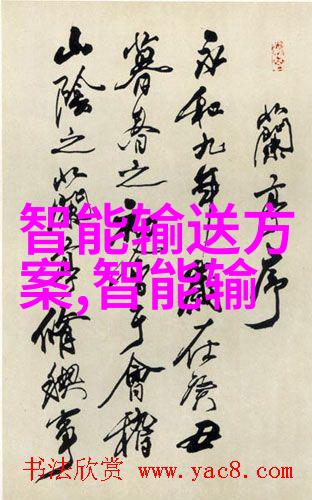 蘭亭序
永和九年歲在癸丑
暮春之初會于會稽
山陰之蘭亭脩禊事
智能输送方
案,智能输
书法欣赏 www.yac8.com